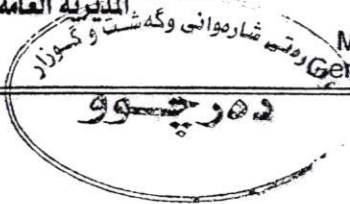 المديرية العامة
وەزارەتی شارەوانی وگەشت و گوزار
M
Ger
دەرچوو